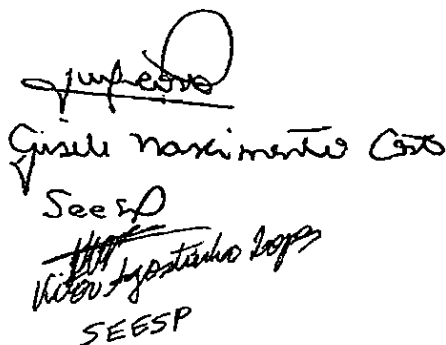 Gisele Nascimento Costa
SeeSP
Agostinho Lopes
SEESP